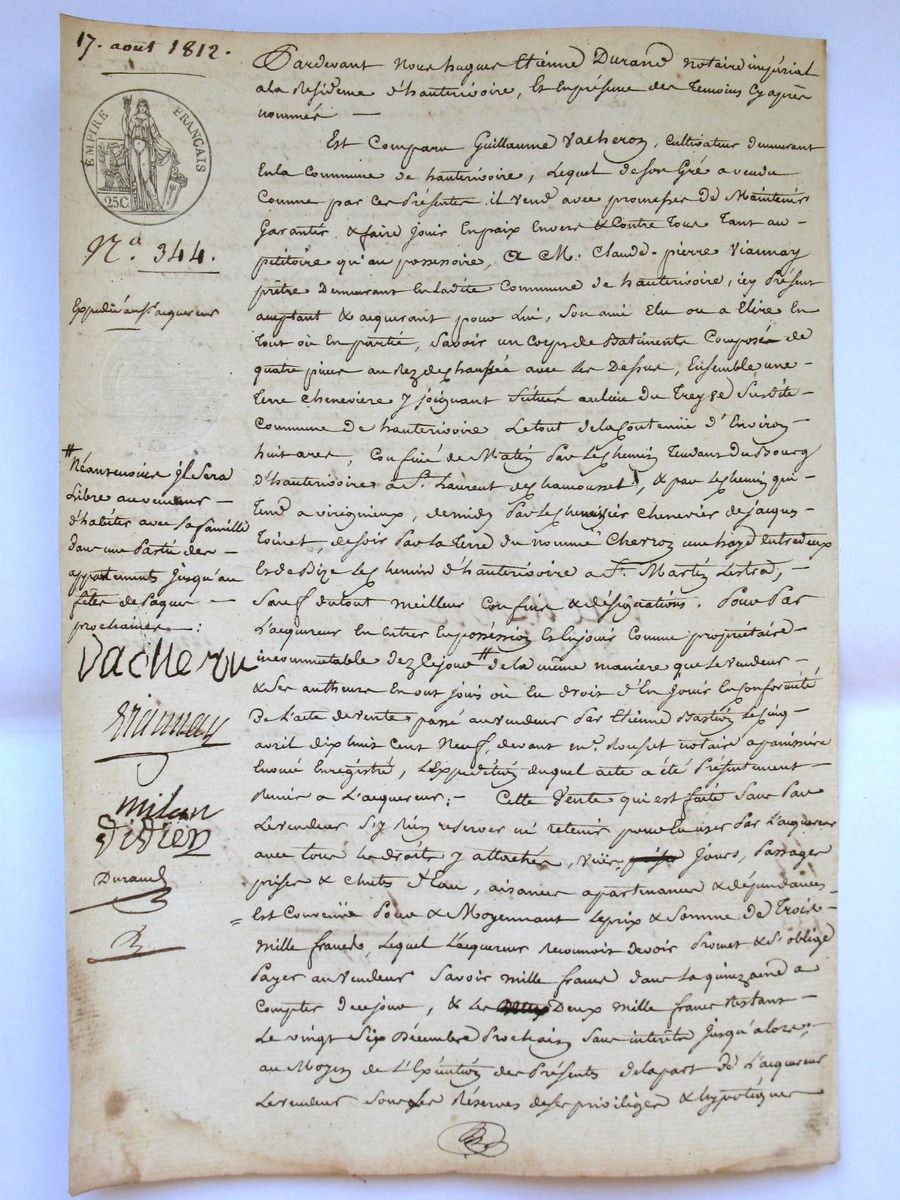 17. août 1812.
EMPIRE FRANÇAIS
25 C.
N.º 344.
Expédié à mr. acquereur
# Néantmoins il sera
Libre au vendeur –
d'habiter avec sa famille
dans une Partie des –
appartements jusqu'au
fêtes de Paques –
prochaines – :
Vacheron
Viannay
milan
didier
Durand
Pardevant Nous hugues Etienne Durand notaire impérial
a la Résidence d'hauterivoire, Et en présence des Temoins Cy après
nommés –
Est Comparu Guillaume Vacheron, Cultivateur demeurant
En la Commune de hauterivoire, Lequel de son Gré a vendu
Comme par ces Présentes il vend avec promesses de Maintenir
Garantir & faire Jouir En paix Envers & Contre Tous Tant au –
pétitoire qu'au possessoire, A M. Claude-pierre Viannay
prêtre Demeurant En Ladite Commune de hauterivoire, icy Présent
acceptant & acquerant pour Lui, Son ami Elu ou a Elire En
Tout où En partie, Savoir un Corps de Batiments Composé de
quatre pieces au Rez de chaussée avec Les Dessus, Ensemble une –
Terre Cheneviere y joignant Situés au lieu du Treyve Susdite –
Commune de hauterivoire Le tout de la Contenue d'Environ –
huit ares, Confiné de Matin Par Le chemin Tendant du Bourg
d'hauterivoire a St. Laurent de chamousset, & par Le chemin qui –
Tend a viricgnieux, de midy Par Le chenevier de Jacques –
Toinet, de soir Par La Terre du nommé Cherron une haye entredeux
Et de Bize Le chemin d'hauterivoire a St. Martin Lestra, –
Sauf du tout meilleur Confins & désignations. Pour Par
L'acquereur En entrer En possession Et En jouir Comme propriétaire –
incommutable dez ce jour # de la même manière que Le vendeur –
& Ses autheurs En ont Jouis où En droit d'En Jouir En Conformité
De L'acte de vente passé au vendeur Par Etienne Bastion Le cinq
avril dix huit cent Neuf, devant me. Rouset notaire a panissière
Enoué Enregistré, L'Expédition duquel acte a été Présentement –
Remis a L'acquereur ; – Cette Vente qui est faite Sans Par
Le vendeur S'y Rien reserver ni retenir pour En user Par L'acquereur
avec tous les droits y attachés, vuës, Jours, Passages
prises & chuts d'Eau, aisances apartenances & dépendances –
= Est Convenüe Pour & Moyennant Le prix & Somme De Trois –
mille francs, Lequel L'acquereur Reconnoit devoir Promet & S'oblige
Payer au Vendeur Savoir mille francs dans La quinzaine a
Compter De ce jour, & Les Deux mille francs Restant –
Le vingt Six Décembre Prochain Sans interêts Jusqu'alors ; –
au Moyen de L'Exécution des Présentes de la part de L'acquereur
Le vendeur Sous Les Réserves de ses priviléges & hypotéques